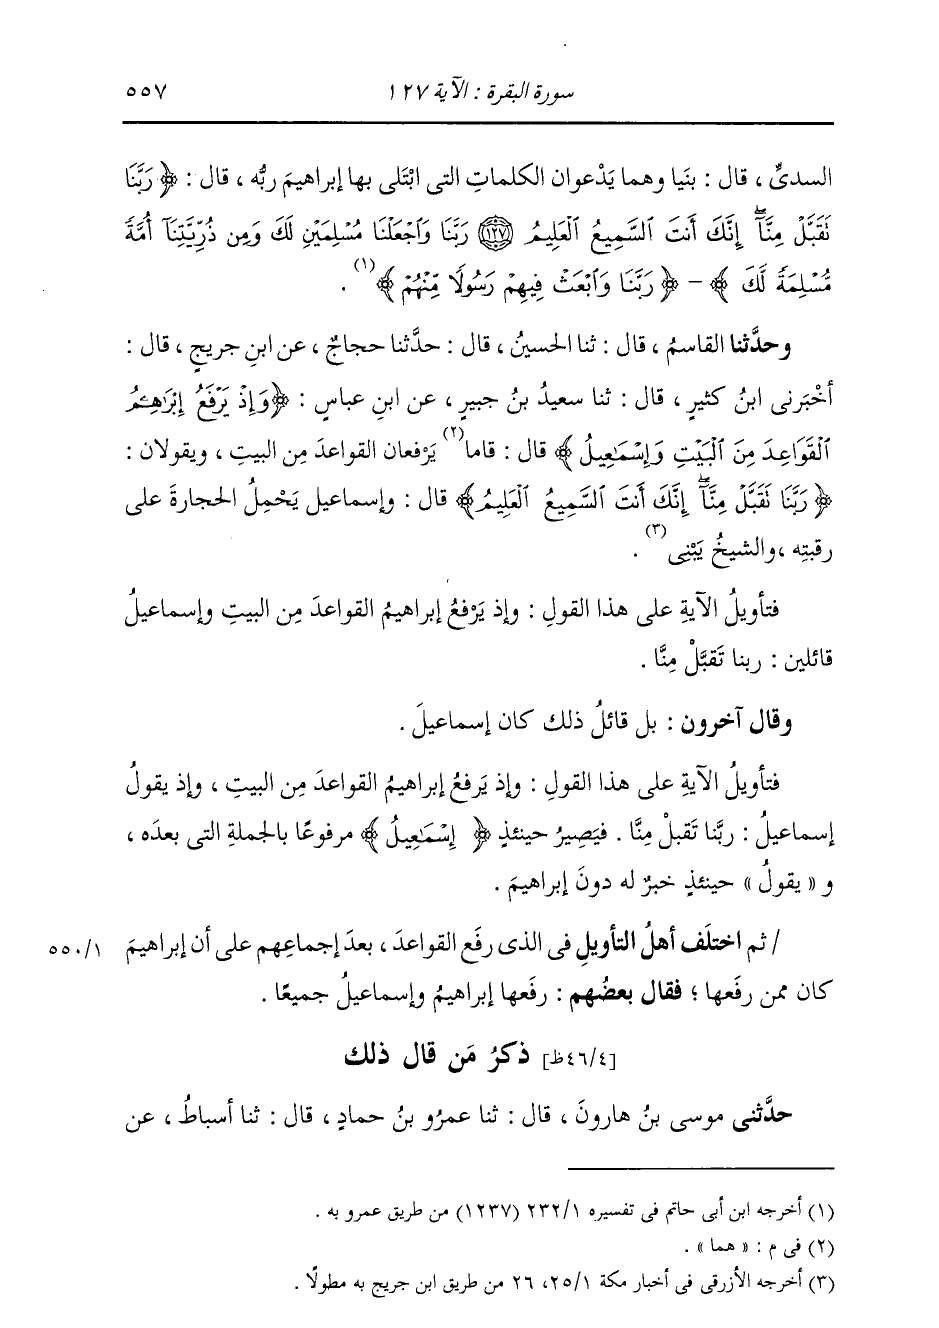 سورة البقرة : الآية ١٢٧ ٥٥٧
السدىِّ ، قال : بنَيا وهما يَدْعوان الكلماتِ التى ابْتَلى بها إبراهيمَ ربُّه ، قال : ﴿ رَبَّنَا
نَقَبَّلْ مِنَّآ ۖ إِنَّكَ أَنتَ ٱلسَّمِيعُ ٱلْعَلِيمُ ﴿١٢٧﴾ رَبَّنَا وَٱجْعَلْنَا مُسْلِمَيْنِ لَكَ وَمِن ذُرِّيَّتِنَآ أُمَّةً
مُّسْلِمَةً لَّكَ ﴾ – ﴿ رَبَّنَا وَٱبْعَثْ فِيهِمْ رَسُولًا مِّنْهُمْ ﴾(١) .
وحدَّثنا القاسمُ ، قال : ثنا الحسينُ ، قال : حدَّثنا حجاجٌ ، عن ابنِ جريجٍ ، قال :
أخْبَرنى ابنُ كثيرٍ ، قال : ثنا سعيدُ بنُ جبيرٍ ، عن ابنِ عباسٍ : ﴿وَإِذْ يَرْفَعُ إِبْرَٰهِـۧمُ
ٱلْقَوَاعِدَ مِنَ ٱلْبَيْتِ وَإِسْمَٰعِيلُ ﴾ قال : قاما(٢) يَرْفعان القواعدَ مِن البيتِ ، ويقولان :
﴿ رَبَّنَا نَقَبَّلْ مِنَّآ ۖ إِنَّكَ أَنتَ ٱلسَّمِيعُ ٱلْعَلِيمُ﴾ قال : وإسماعيل يَحْمِلُ الحجارةَ على
رقبتِه ،والشيخُ يَبْنِى(٣) .
فتأويلُ الآيةِ على هذا القولِ : وإذ يَرْفعُ إبراهيمُ القواعدَ مِن البيتِ وإسماعيلُ
قائلين : ربنا تَقبَّلْ مِنَّا .
وقال آخرون : بل قائلُ ذلك كان إسماعيلَ .
فتأويلُ الآيةِ على هذا القولِ : وإذ يَرفعُ إبراهيمُ القواعدَ مِن البيتِ ، وإذ يقولُ
إسماعيلُ : ربَّنا تَقبلْ مِنَّا . فيَصِيرُ حينئذٍ ﴿ إِسْمَٰعِيلُ ﴾ مرفوعًا بالجملةِ التى بعدَه ،
و « يقولُ » حينئذٍ خبرٌ له دونَ إبراهيمَ .
/ ثم اختلَف أهلُ التأويلِ فى الذى رفَع القواعدَ ، بعدَ إجماعِهم على أن إبراهيمَ ٥٥٠/١
كان ممن رفَعها ؛ فقال بعضُهم : رفَعها إبراهيمُ وإسماعيلُ جميعًا .
[٤٦/٤ظ] ذكرُ مَن قال ذلك
حدَّثنى موسى بنُ هارونَ ، قال : ثنا عمرُو بنُ حمادٍ ، قال : ثنا أسباطُ ، عن
(١) أخرجه ابن أبى حاتم فى تفسيره ٢٣٢/١ (١٢٣٧) من طريق عمرو به .
(٢) فى م : « هما » .
(٣) أخرجه الأزرقى فى أخبار مكة ٢٥/١، ٢٦ من طريق ابن جريج به مطولًا .